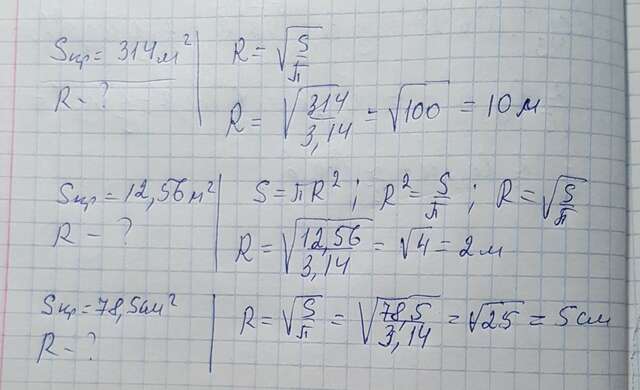 Sкр = 314 м² | R = √(S/π)
R - ? | R = √(314/3,14) = √100 = 10 м
Sкр = 12,56 м² | S = πR² ; R² = S/π ; R = √(S/π)
R - ? | R = √(12,56/3,14) = √4 = 2 м
Sкр = 78,5 см² | R = √(S/π) = √(78,5/3,14) = √25 = 5 см
R - ?